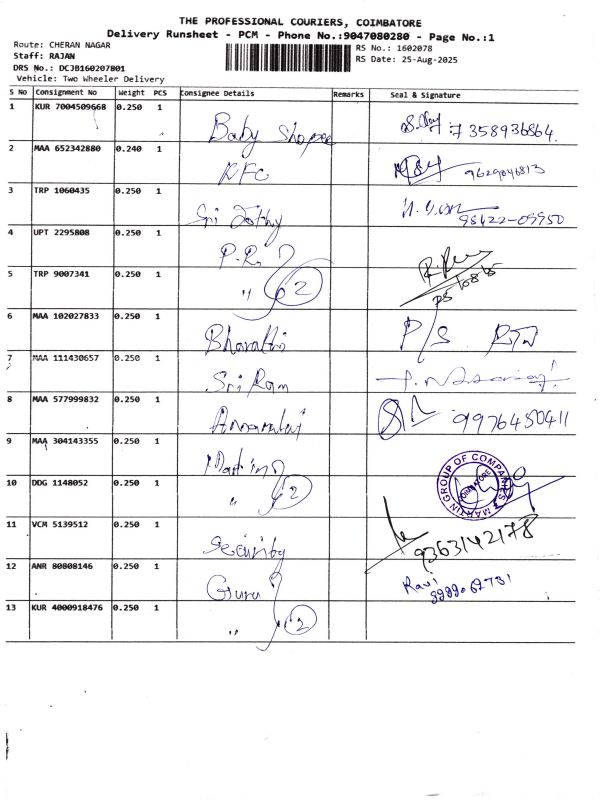 THE PROFESSIONAL COURIERS, COIMBATORE
Delivery Runsheet - PCM - Phone No.:9047080280 - Page No.:1
Route: CHERAN NAGAR
RS No.: 1602078
Staff: RAJAN
RS Date: 25-Aug-2025
DRS No.: DCJB160207801
Vehicle: Two Wheeler Delivery
S No Consignment No Weight PCS Consignee Details Remarks Seal & Signature
1 KUR 7004509668 0.250 1 Baby Shopee 7358936864.
2 MAA 652342880 0.240 1 KFC 9629046813
3 TRP 1060435 0.250 1 Sri Jothy 98422-09950
4 UPT 2295808 0.250 1 P.R.
5 TRP 9007341 0.250 1 " 2 25/08/25
6 MAA 102027833 0.250 1 Bharathi P/S RTN
7 MAA 111430657 0.250 1 Sri Ram
8 MAA 577999832 0.250 1 Annamalai 9976450411
9 MAA 304143355 0.250 1 Martin
10 DDG 1148052 0.250 1 " 2 MARTIN GROUP OF COMPANIES COIMBATORE
11 VCM 5139512 0.250 1 Security 9363142178
12 ANR 80808146 0.250 1 Guru Ravi
13 KUR 4000918476 0.250 1 " 2